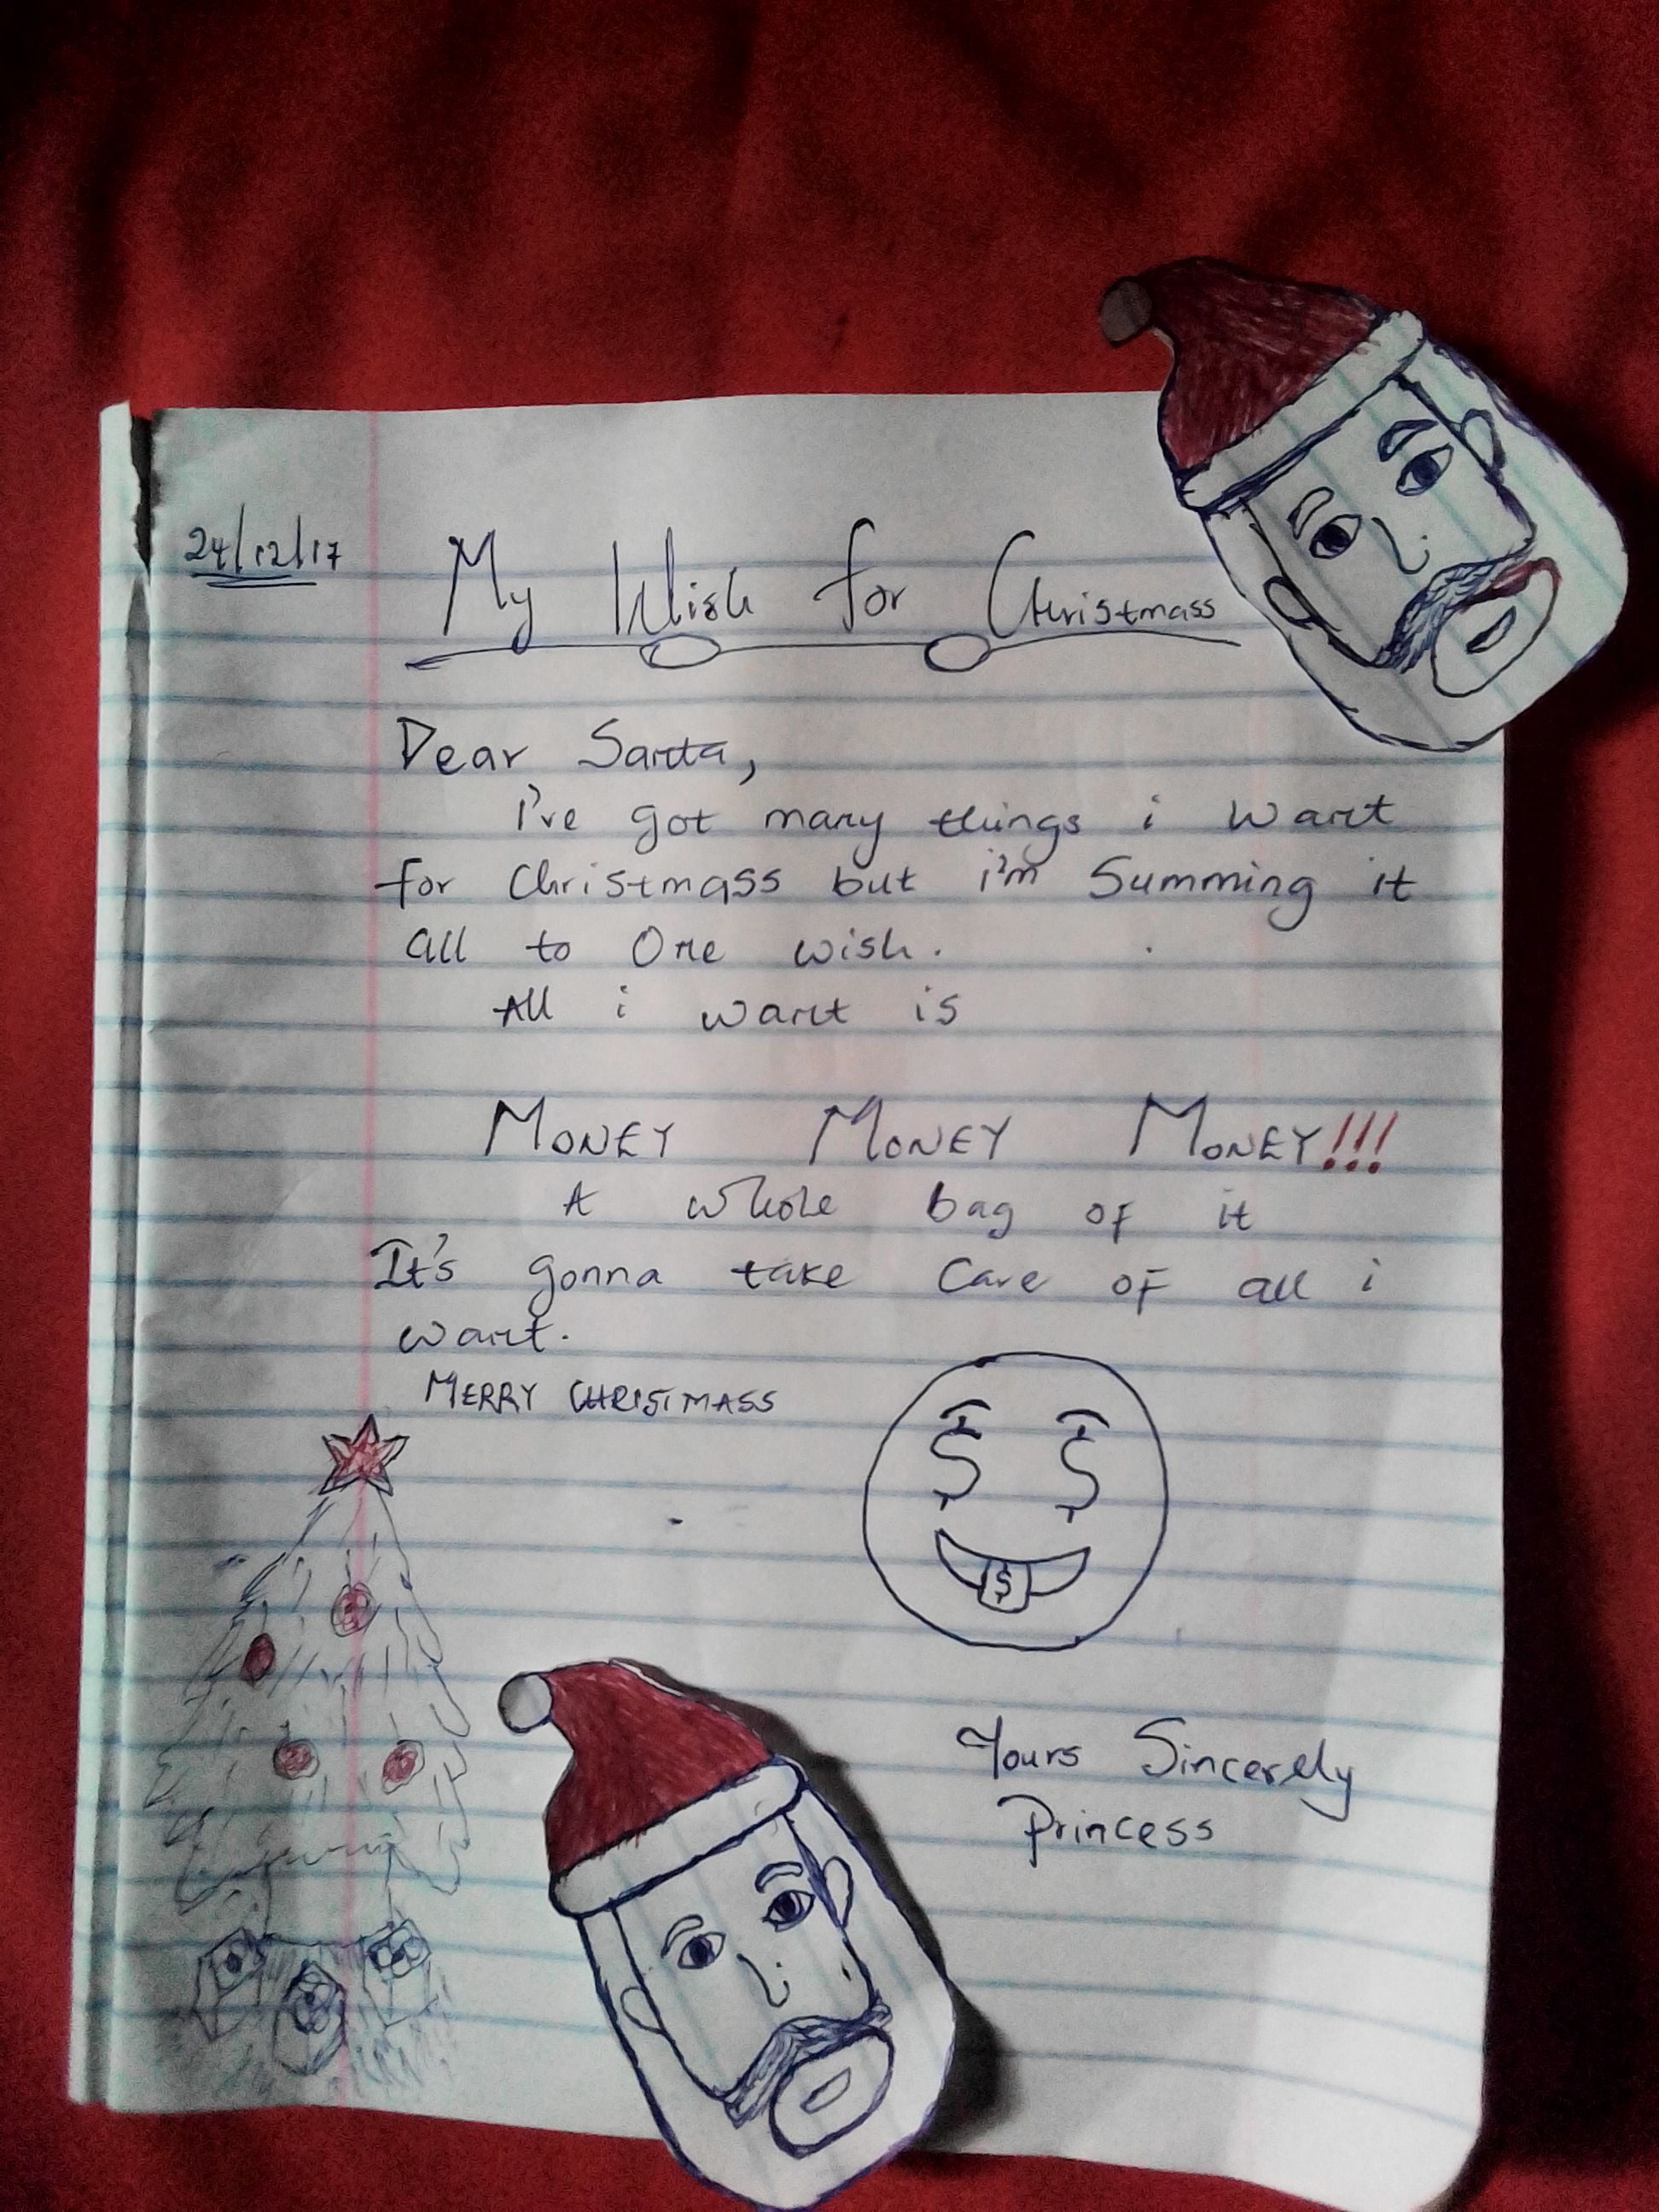 24/12/17
My Wish for Christmass
Dear Santa,
i've got many things i want
for Christmass but i'm Summing it
all to One wish.
All i want is
MONEY MONEY MONEY!!!
A whole bag of it
It's gonna take Care of all i
want.
MERRY CHRISTMASS
$ $
$
Yours Sincerely
Princess